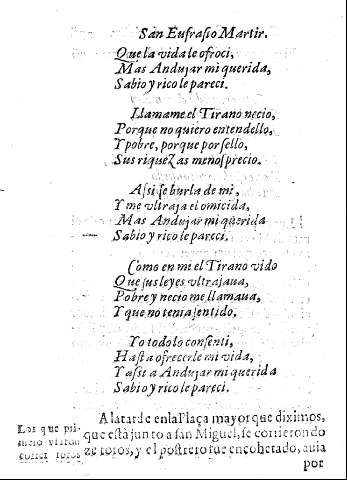 San Eufrasio Martir.
Que la vida le ofroci,
Mas Andujar mi querida,
Sabio y rico le pareci.
Llamame el Tirano necio,
Porque no quiero entendello,
Y pobre, porque por sello,
Sus riquezas menosprecio.
Assi se burla de mi,
Y me vltraja el omicida,
Mas Andujar mi querida
Sabio y rico le pareci.
Como en mi el Tirano vido
Que sus leyes vltrajaua,
Pobre y necio me llamaua,
Y que no tenia sentido.
Yo todo lo consenti,
Hasta ofrecerle mi vida,
Y assi a Andujar mi querida
Sabio y rico le pareci.
A la tarde en la Plaça mayor que diximos,
Los que pri-
que està junto a san Miguel, se corrieron do
mero
ze toros, y el postrero fue encohetado, auia
correr toros
por